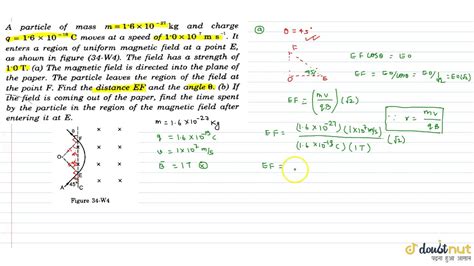 A particle of mass m = 1·6 × 10⁻²⁷ kg and charge
q = 1·6 × 10⁻¹⁹ C moves at a speed of 1·0 × 10⁷ m s⁻¹. It
enters a region of uniform magnetic field at a point E,
as shown in figure (34-W4). The field has a strength of
1·0 T. (a) The magnetic field is directed into the plane of
the paper. The particle leaves the region of the field at
the point F. Find the distance EF and the angle θ. (b) If
the field is coming out of the paper, find the time spent
by the particle in the region of the magnetic field after
entering it at E.
m = 1.6×10⁻²⁷ Kg
q = 1.6×10⁻¹⁹ C
v = 1×10⁷ m/s
B = 1T ⊗
F
O
E
A
C
45°
Figure 34-W4
(a) θ = 45°
F
O
45°
E
EF cosθ = EO
EF = EO/cosθ = EO/
EF = (mv/qB) (√2)
∵ r = mv/qB
EF = (1.6×10⁻²⁷)(1×10⁷ m/s)/(1.6×10⁻¹⁹ C)(1T) (√2)
EF =
doubtnut